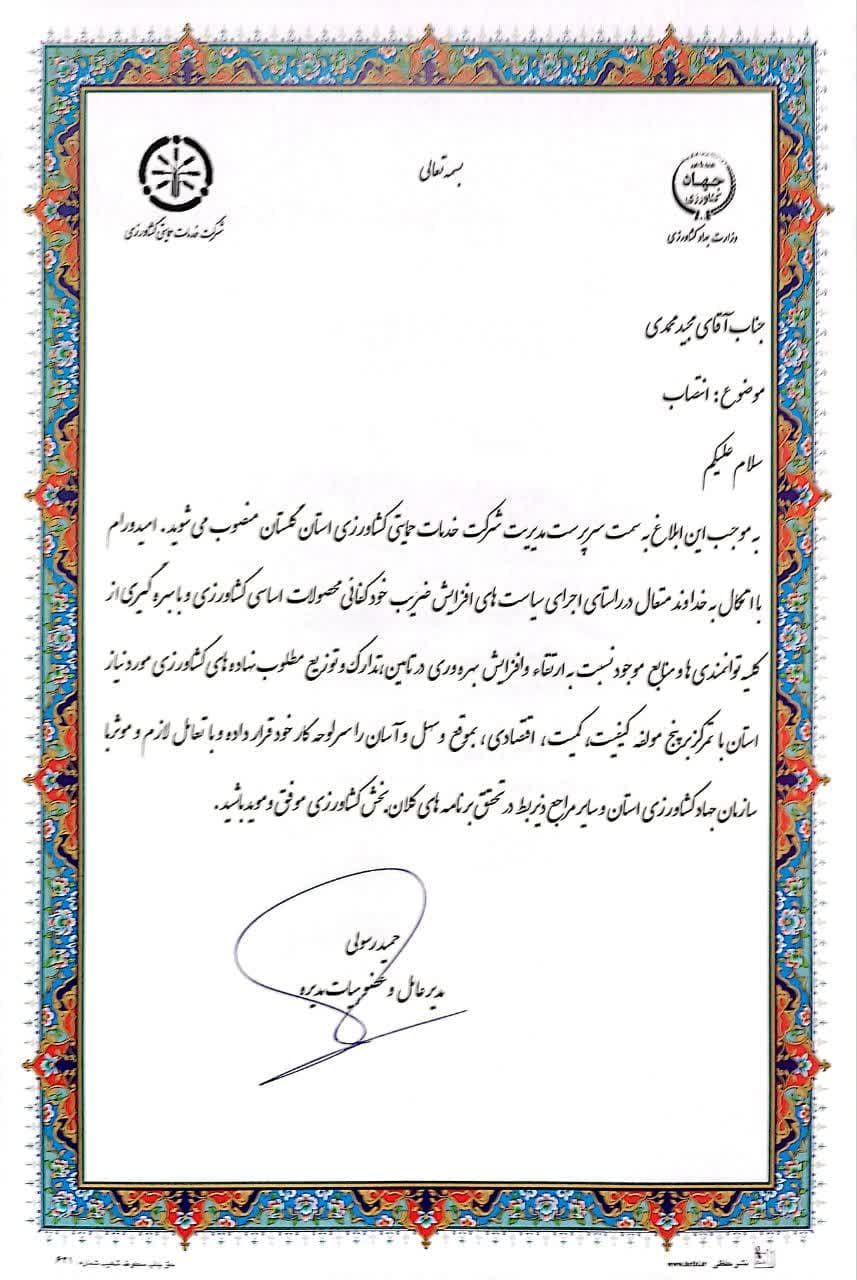 بسمه تعالی
جهاد
کشاورزی
وزارت جهاد کشاورزی
شرکت خدمات حمایتی کشاورزی
جناب آقای مجید محمدی
موضوع: انتصاب
سلام علیکم
به موجب این ابلاغ به سمت سرپرست مدیریت شرکت خدمات حمایتی کشاورزی استان گلستان منصوب می شوید. امیدوارم
با اتکال به خداوند متعال در راستای اجرای سیاست های افزایش ضریب خودکفائی محصولات اساسی کشاورزی و با بهره گیری از
کلیه توانمندی ها و منابع موجود نسبت به ارتقاء و افزایش بهره وری در تامین، تدارک و توزیع مطلوب نهاده های کشاورزی مورد نیاز
استان با تمرکز بر پنج مولفه کیفیت، کمیت، اقتصادی، بموقع و سهل و آسان را سرلوحه کار خود قرار داده و با تعامل لازم و موثر با
سازمان جهاد کشاورزی استان و سایر مراجع ذیربط در تحقق برنامه های کلان بخش کشاورزی موفق و موید باشید.
حمید رسولی
مدیر عامل و عضو هیات مدیره